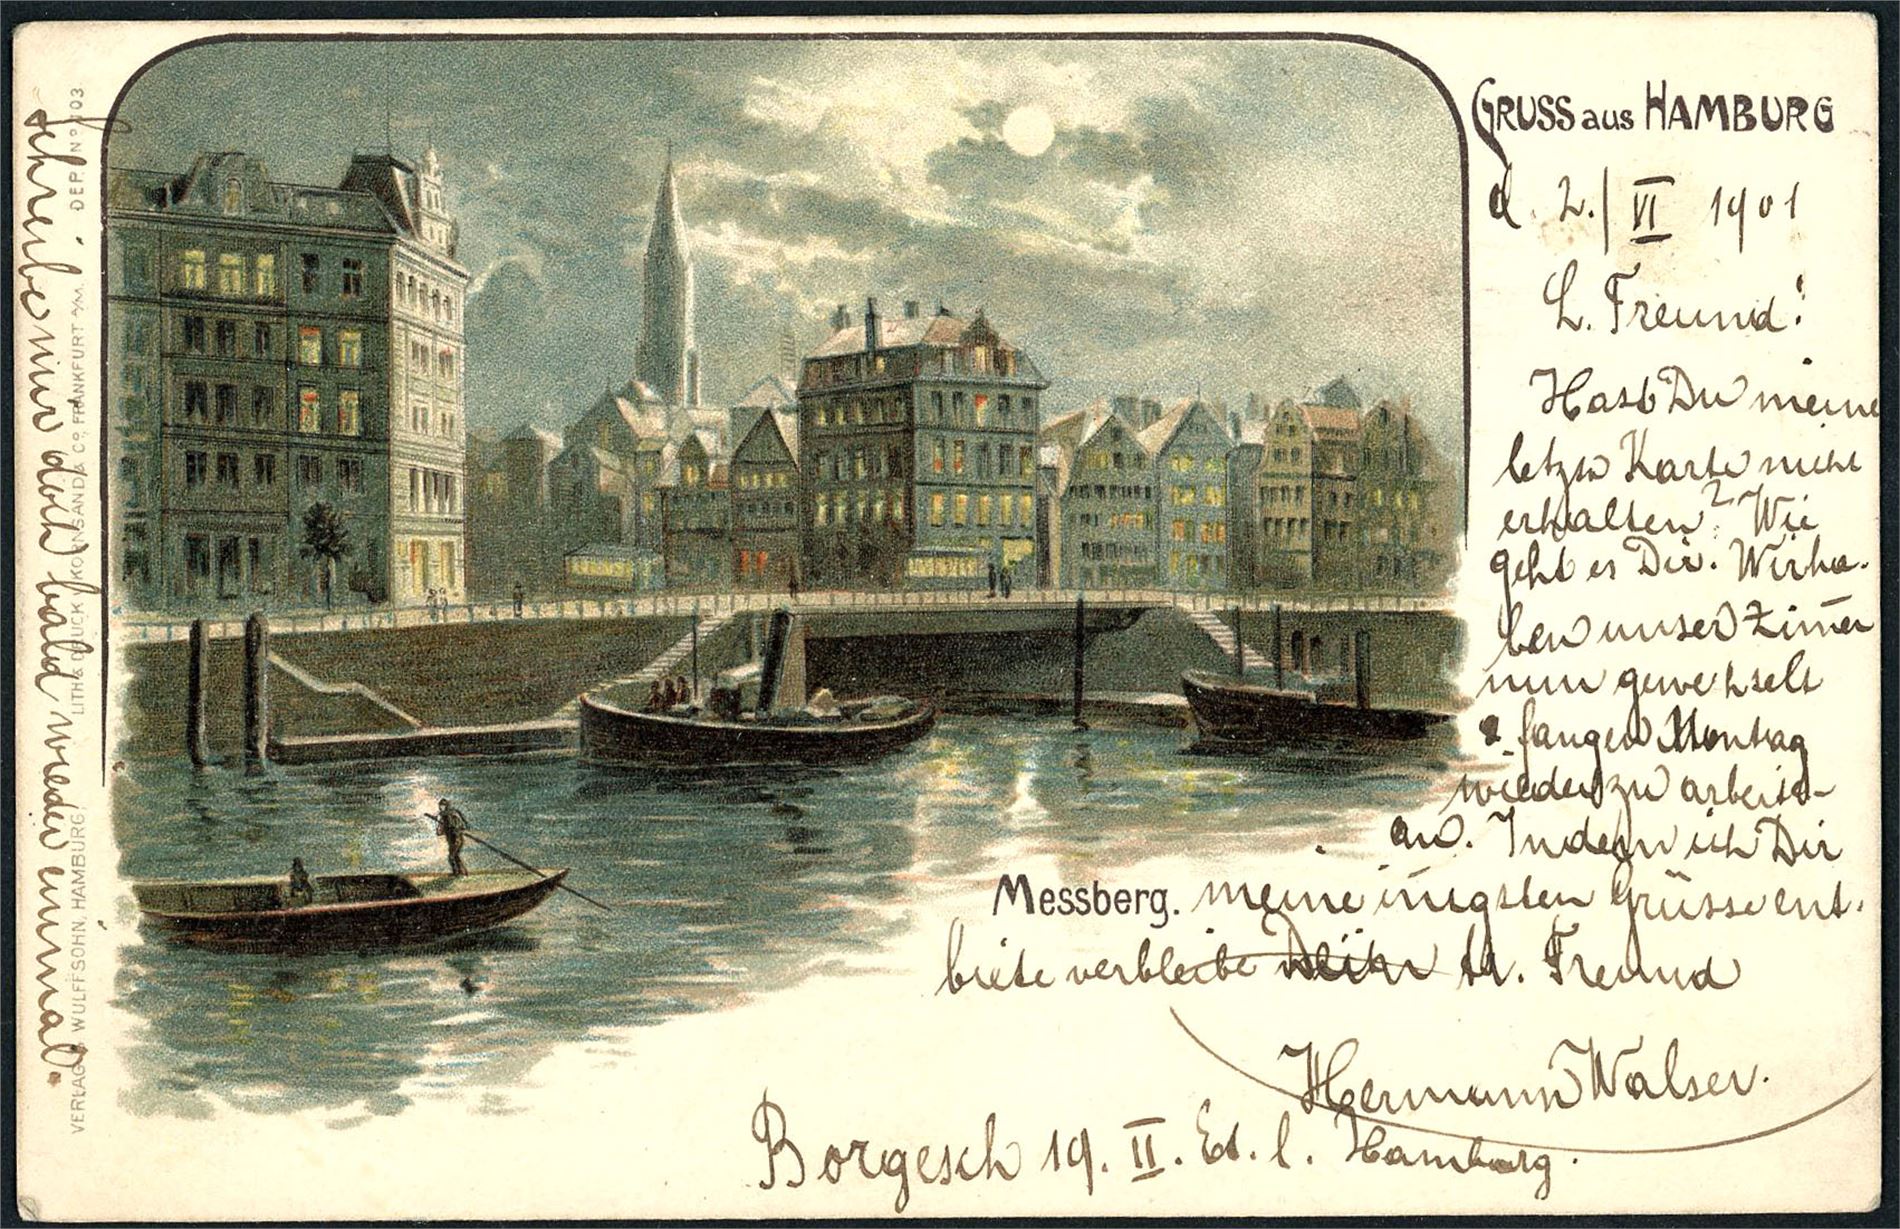 GRUSS aus HAMBURG
d. 2./VI 1901
L. Freund!
Hast Du meine
letzte Karte nicht
erhalten? Wie
geht es Dir. Wir ha-
ben unser Zimmer
nun gewechselt
fangen Montag
wieder zu arbeite-
an. Indem ich Dir
Messberg.
meine innigsten Grüsse ent-
biete verbleibe Freund
Hermann Walser.
Borgesch 19. II. Et. l. Hamburg.
schreibe mir doch bald wieder einmal.
VERLAG WULFFSOHN, HAMBURG. LITH & DRUCK KOEHNSAND & CO, FRANKFURT a/M. DEP. No